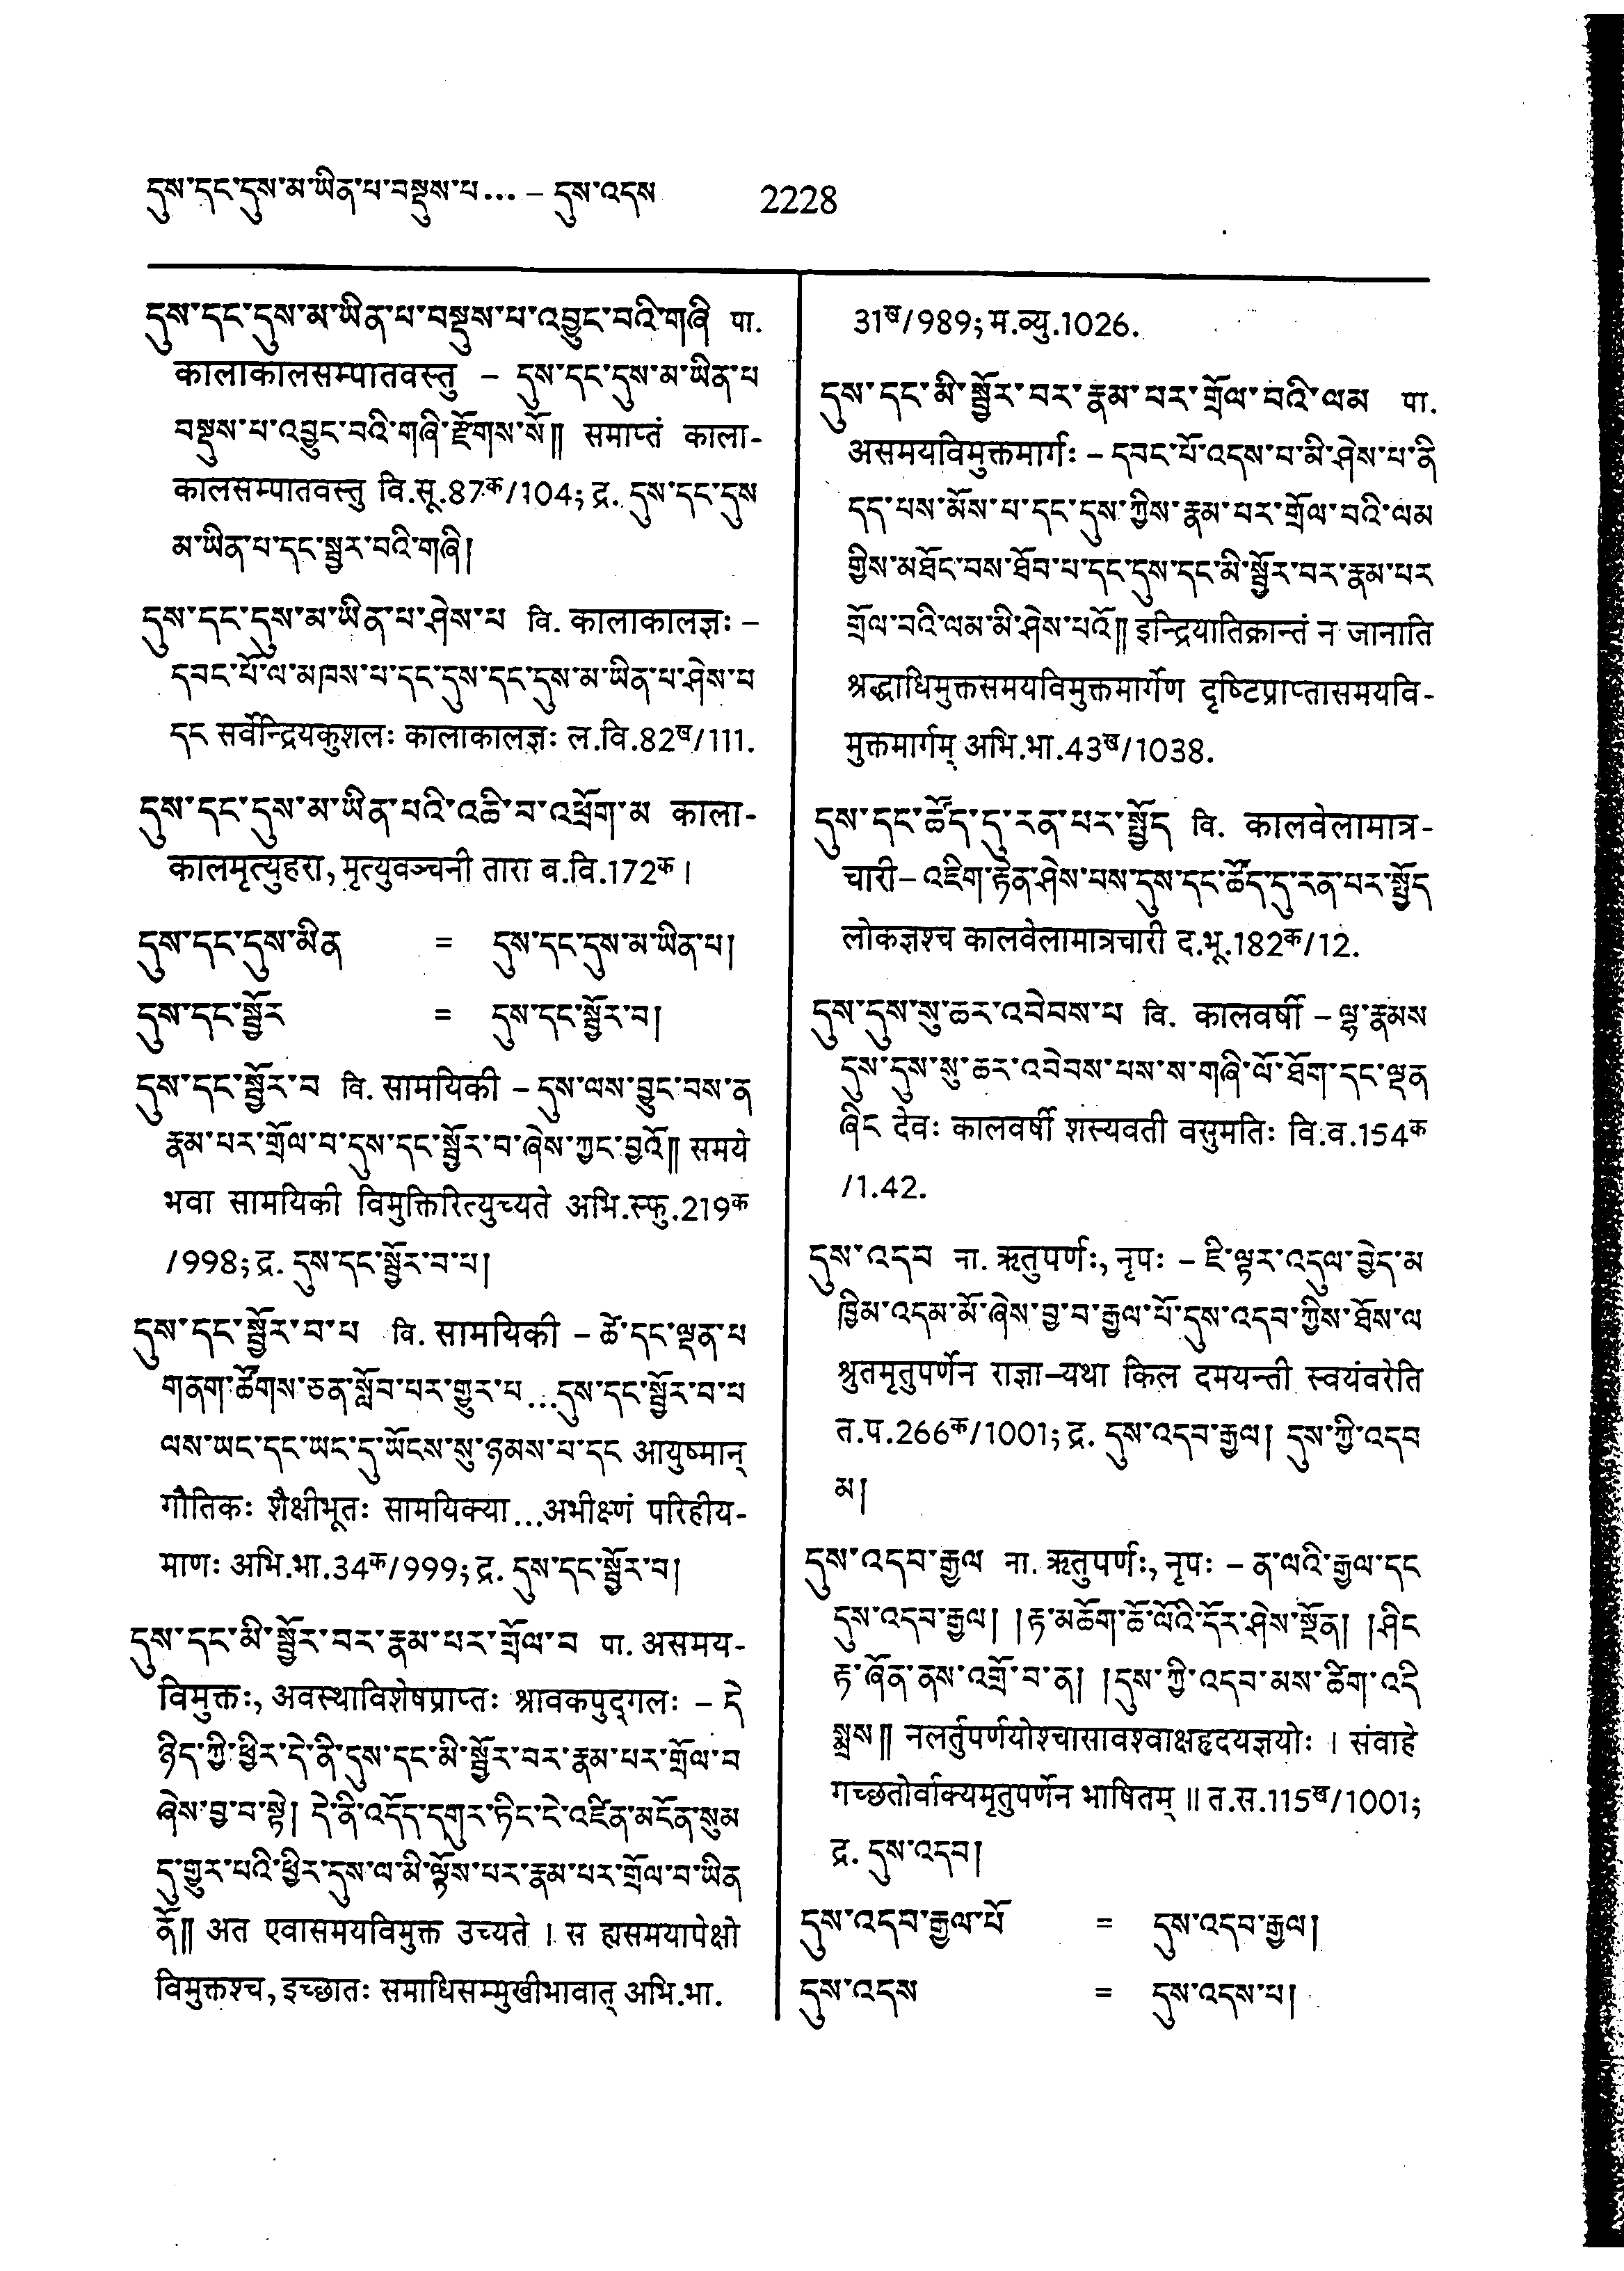 དུས་དང་དུས་མ་ཡིན་པ་བསྡུས་པ... – དུས་འདས 2228
དུས་དང་དུས་མ་ཡིན་པ་བསྡུས་པ་འབྱུང་བའི་གཞི पा.
कालाकालसम्पातवस्तु – དུས་དང་དུས་མ་ཡིན་པ
བསྡུས་པ་འབྱུང་བའི་གཞི་རྫོགས་སོ༎ समाप्तं काला-
कालसम्पातवस्तु वि.सू.87क/104; द्र. དུས་དང་དུས
མ་ཡིན་པ་དང་སྦྱར་བའི་གཞི།
དུས་དང་དུས་མ་ཡིན་པ་ཤེས་པ वि. कालाकालज्ञः –
དབང་པོ་ལ་མཁས་པ་དང་དུས་དང་དུས་མ་ཡིན་པ་ཤེས་པ
དང सर्वेन्द्रियकुशलः कालाकालज्ञः ल.वि.82ख/111.
དུས་དང་དུས་མ་ཡིན་པའི་འཆི་བ་འཕྲོག་མ काला-
कालमृत्युहरा, मृत्युवञ्चनी तारा ब.वि.172क ।
དུས་དང་དུས་མིན = དུས་དང་དུས་མ་ཡིན་པ།
དུས་དང་སྦྱོར = དུས་དང་སྦྱོར་བ།
དུས་དང་སྦྱོར་བ वि. सामयिकी – དུས་ལས་བྱུང་བས་ན
རྣམ་པར་གྲོལ་བ་དུས་དང་སྦྱོར་བ་ཞེས་ཀྱང་བྱའོ༎ समये
भवा सामयिकी विमुक्तिरित्युच्यते अभि.स्फु.219क
/998; द्र. དུས་དང་སྦྱོར་བ་པ།
དུས་དང་སྦྱོར་བ་པ वि. सामयिकी – ཚེ་དང་ལྡན་པ
གནག་ཚོགས་ཅན་སློབ་པར་གྱུར་པ...དུས་དང་སྦྱོར་བ་པ
ལས་ཡང་དང་ཡང་དུ་ཡོངས་སུ་ཉམས་པ་དང आयुष्मान्
गौतिकः शैक्षीभूतः सामयिक्या...अभीक्ष्णं परिहीय-
माणः अभि.भा.34क/999; द्र. དུས་དང་སྦྱོར་བ།
དུས་དང་མི་སྦྱོར་བར་རྣམ་པར་གྲོལ་བ पा. असमय-
विमुक्तः, अवस्थाविशेषप्राप्तः श्रावकपुद्गलः – དེ
ཉིད་ཀྱི་ཕྱིར་དེ་ནི་དུས་དང་མི་སྦྱོར་བར་རྣམ་པར་གྲོལ་བ
ཞེས་བྱ་བ་སྟེ། དེ་ནི་འདོད་དགུར་ཏིང་ངེ་འཛིན་མངོན་སུམ
དུ་གྱུར་པའི་ཕྱིར་དུས་ལ་མི་ལྟོས་པར་རྣམ་པར་གྲོལ་བ་ཡིན
ནོ༎ अत एवासमयविमुक्त उच्यते । स ह्यसमयापेक्षो
विमुक्तश्च, इच्छातः समाधिसम्मुखीभावात् अभि.भा.
31ख/989; म.व्यु.1026.
དུས་དང་མི་སྦྱོར་བར་རྣམ་པར་གྲོལ་བའི་ལམ पा.
असमयविमुक्तमार्गः – དབང་པོ་འདས་པ་མི་ཤེས་པ་ནི
དད་པས་མོས་པ་དང་དུས་ཀྱིས་རྣམ་པར་གྲོལ་བའི་ལམ
གྱིས་མཐོང་བས་ཐོབ་པ་དང་དུས་དང་མི་སྦྱོར་བར་རྣམ་པར
གྲོལ་བའི་ལམ་མི་ཤེས་པའོ༎ इन्द्रियातिक्रान्तं न जानाति
श्रद्धाधिमुक्तसमयविमुक्तमार्गेण दृष्टिप्राप्तासमयवि-
मुक्तमार्गम् अभि.भा.43ख/1038.
དུས་དང་ཚོད་དུ་རན་པར་སྤྱོད वि. कालवेलामात्र-
चारी– འཇིག་རྟེན་ཤེས་པས་དུས་དང་ཚོད་དུ་རན་པར་སྤྱོད
लोकज्ञश्च कालवेलामात्रचारी द.भू.182क/12.
དུས་དུས་སུ་ཆར་འབེབས་པ वि. कालवर्षी – ལྷ་རྣམས
དུས་དུས་སུ་ཆར་འབེབས་པས་ས་གཞི་ལོ་ཐོག་དང་ལྡན
ཞིང देवः कालवर्षी शस्यवती वसुमतिः वि.व.154क
/1.42.
དུས་འདབ ना. ऋतुपर्णः, नृपः – ཇི་ལྟར་འདུལ་བྱེད་མ
ཁྱིམ་འདམ་མོ་ཞེས་བྱ་བ་རྒྱལ་པོ་དུས་འདབ་ཀྱིས་ཐོས་ལ
श्रुतमृतुपर्णेन राज्ञा–यथा किल दमयन्ती स्वयंवरेति
त.प.266क/1001; द्र. དུས་འདབ་རྒྱལ། དུས་ཀྱི་འདབ
མ།
དུས་འདབ་རྒྱལ ना. ऋतुपर्णः, नृपः – ན་ལའི་རྒྱལ་དང
དུས་འདབ་རྒྱལ། །རྟ་མཆོག་ཆོ་ལོའི་དོར་ཤེས་སྔོན། །ཤིང
རྟ་ཞོན་ནས་འགྲོ་བ་ན། །དུས་ཀྱི་འདབ་མས་ཚིག་འདི
སྨྲས༎ नलर्तुपर्णयोश्चासावश्वाक्षहृदयज्ञयोः । संवाहे
गच्छतोर्वाक्यमृतुपर्णेन भाषितम् ॥ त.स.115ख/1001;
द्र. དུས་འདབ།
དུས་འདབ་རྒྱལ་པོ = དུས་འདབ་རྒྱལ།
དུས་འདས = དུས་འདས་པ།